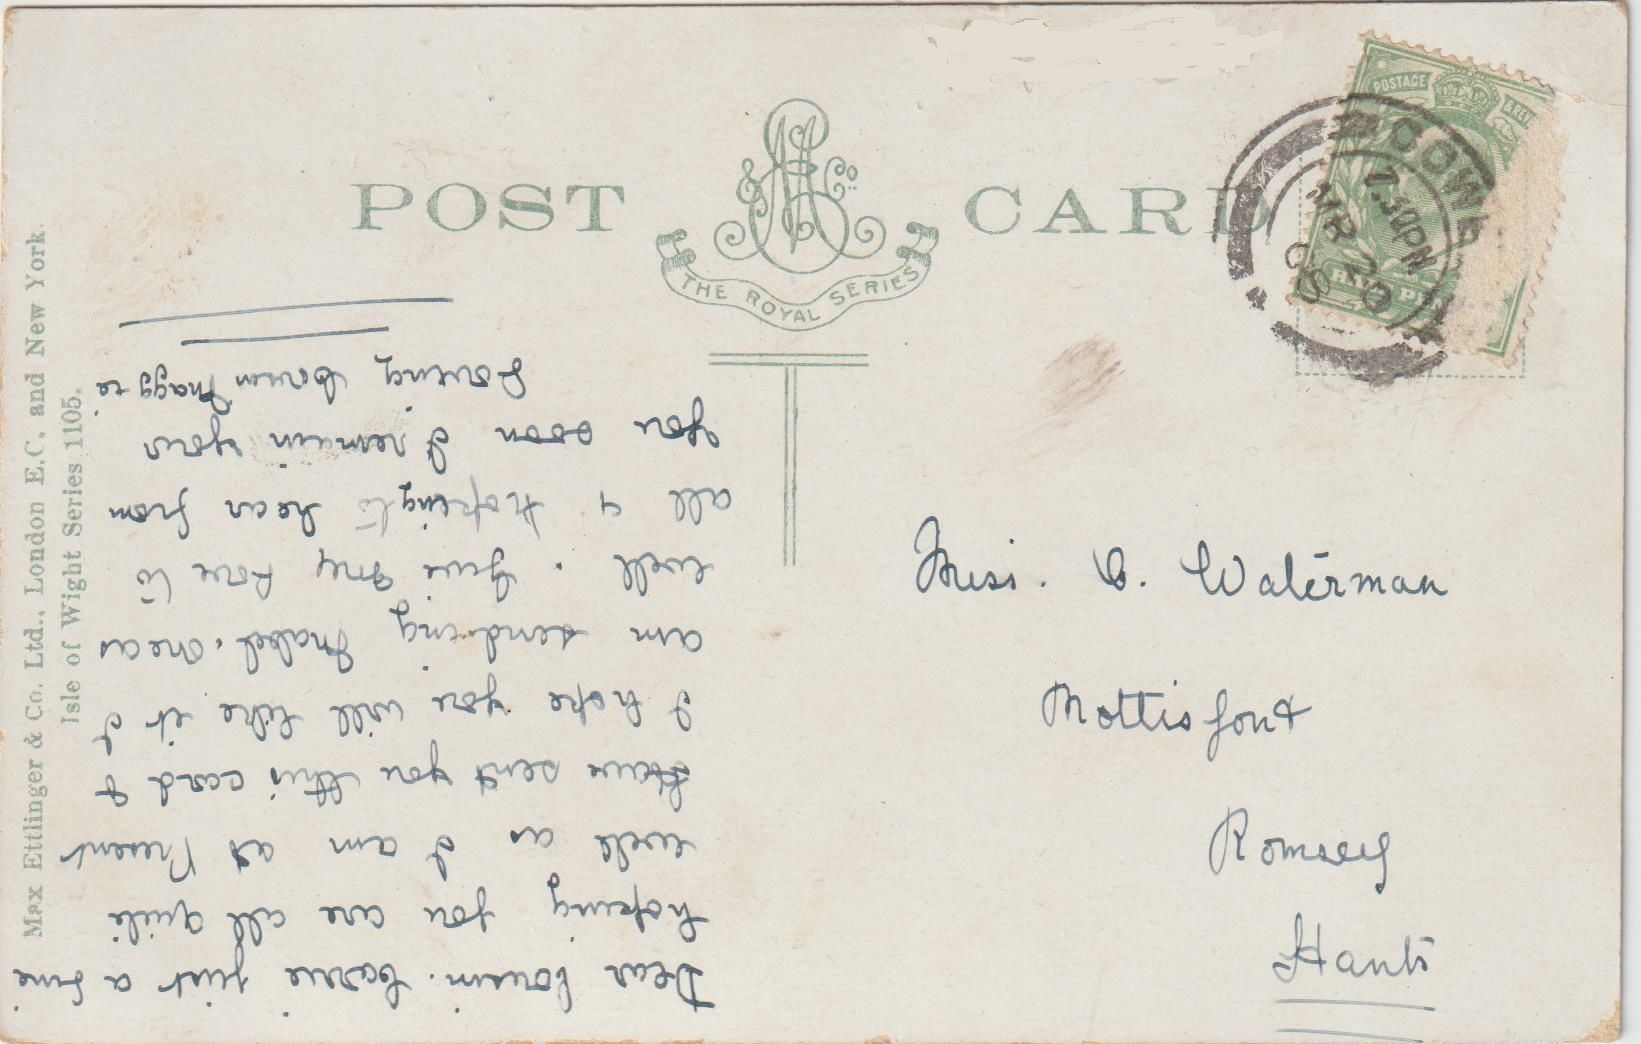 POST CARD
& Co
THE ROYAL SERIES
Max Ettlinger & Co. Ltd., London E.C. and New York
Isle of Wight Series 1105.
POSTAGE & REV
HALF P
COWE
7.30PM
MR 20
Dear Cousin. Cassie just a line
hoping you are all quite
well as I am at Present
Have sent you this card I
I hope you will like it I
am sending Mabel. ones
well. Give My Love to
all & hoping to hear from
you soon I remain your
Loving Cousin Maggie
Miss. C. Waterman
Mottisfont
Romsey
Hants